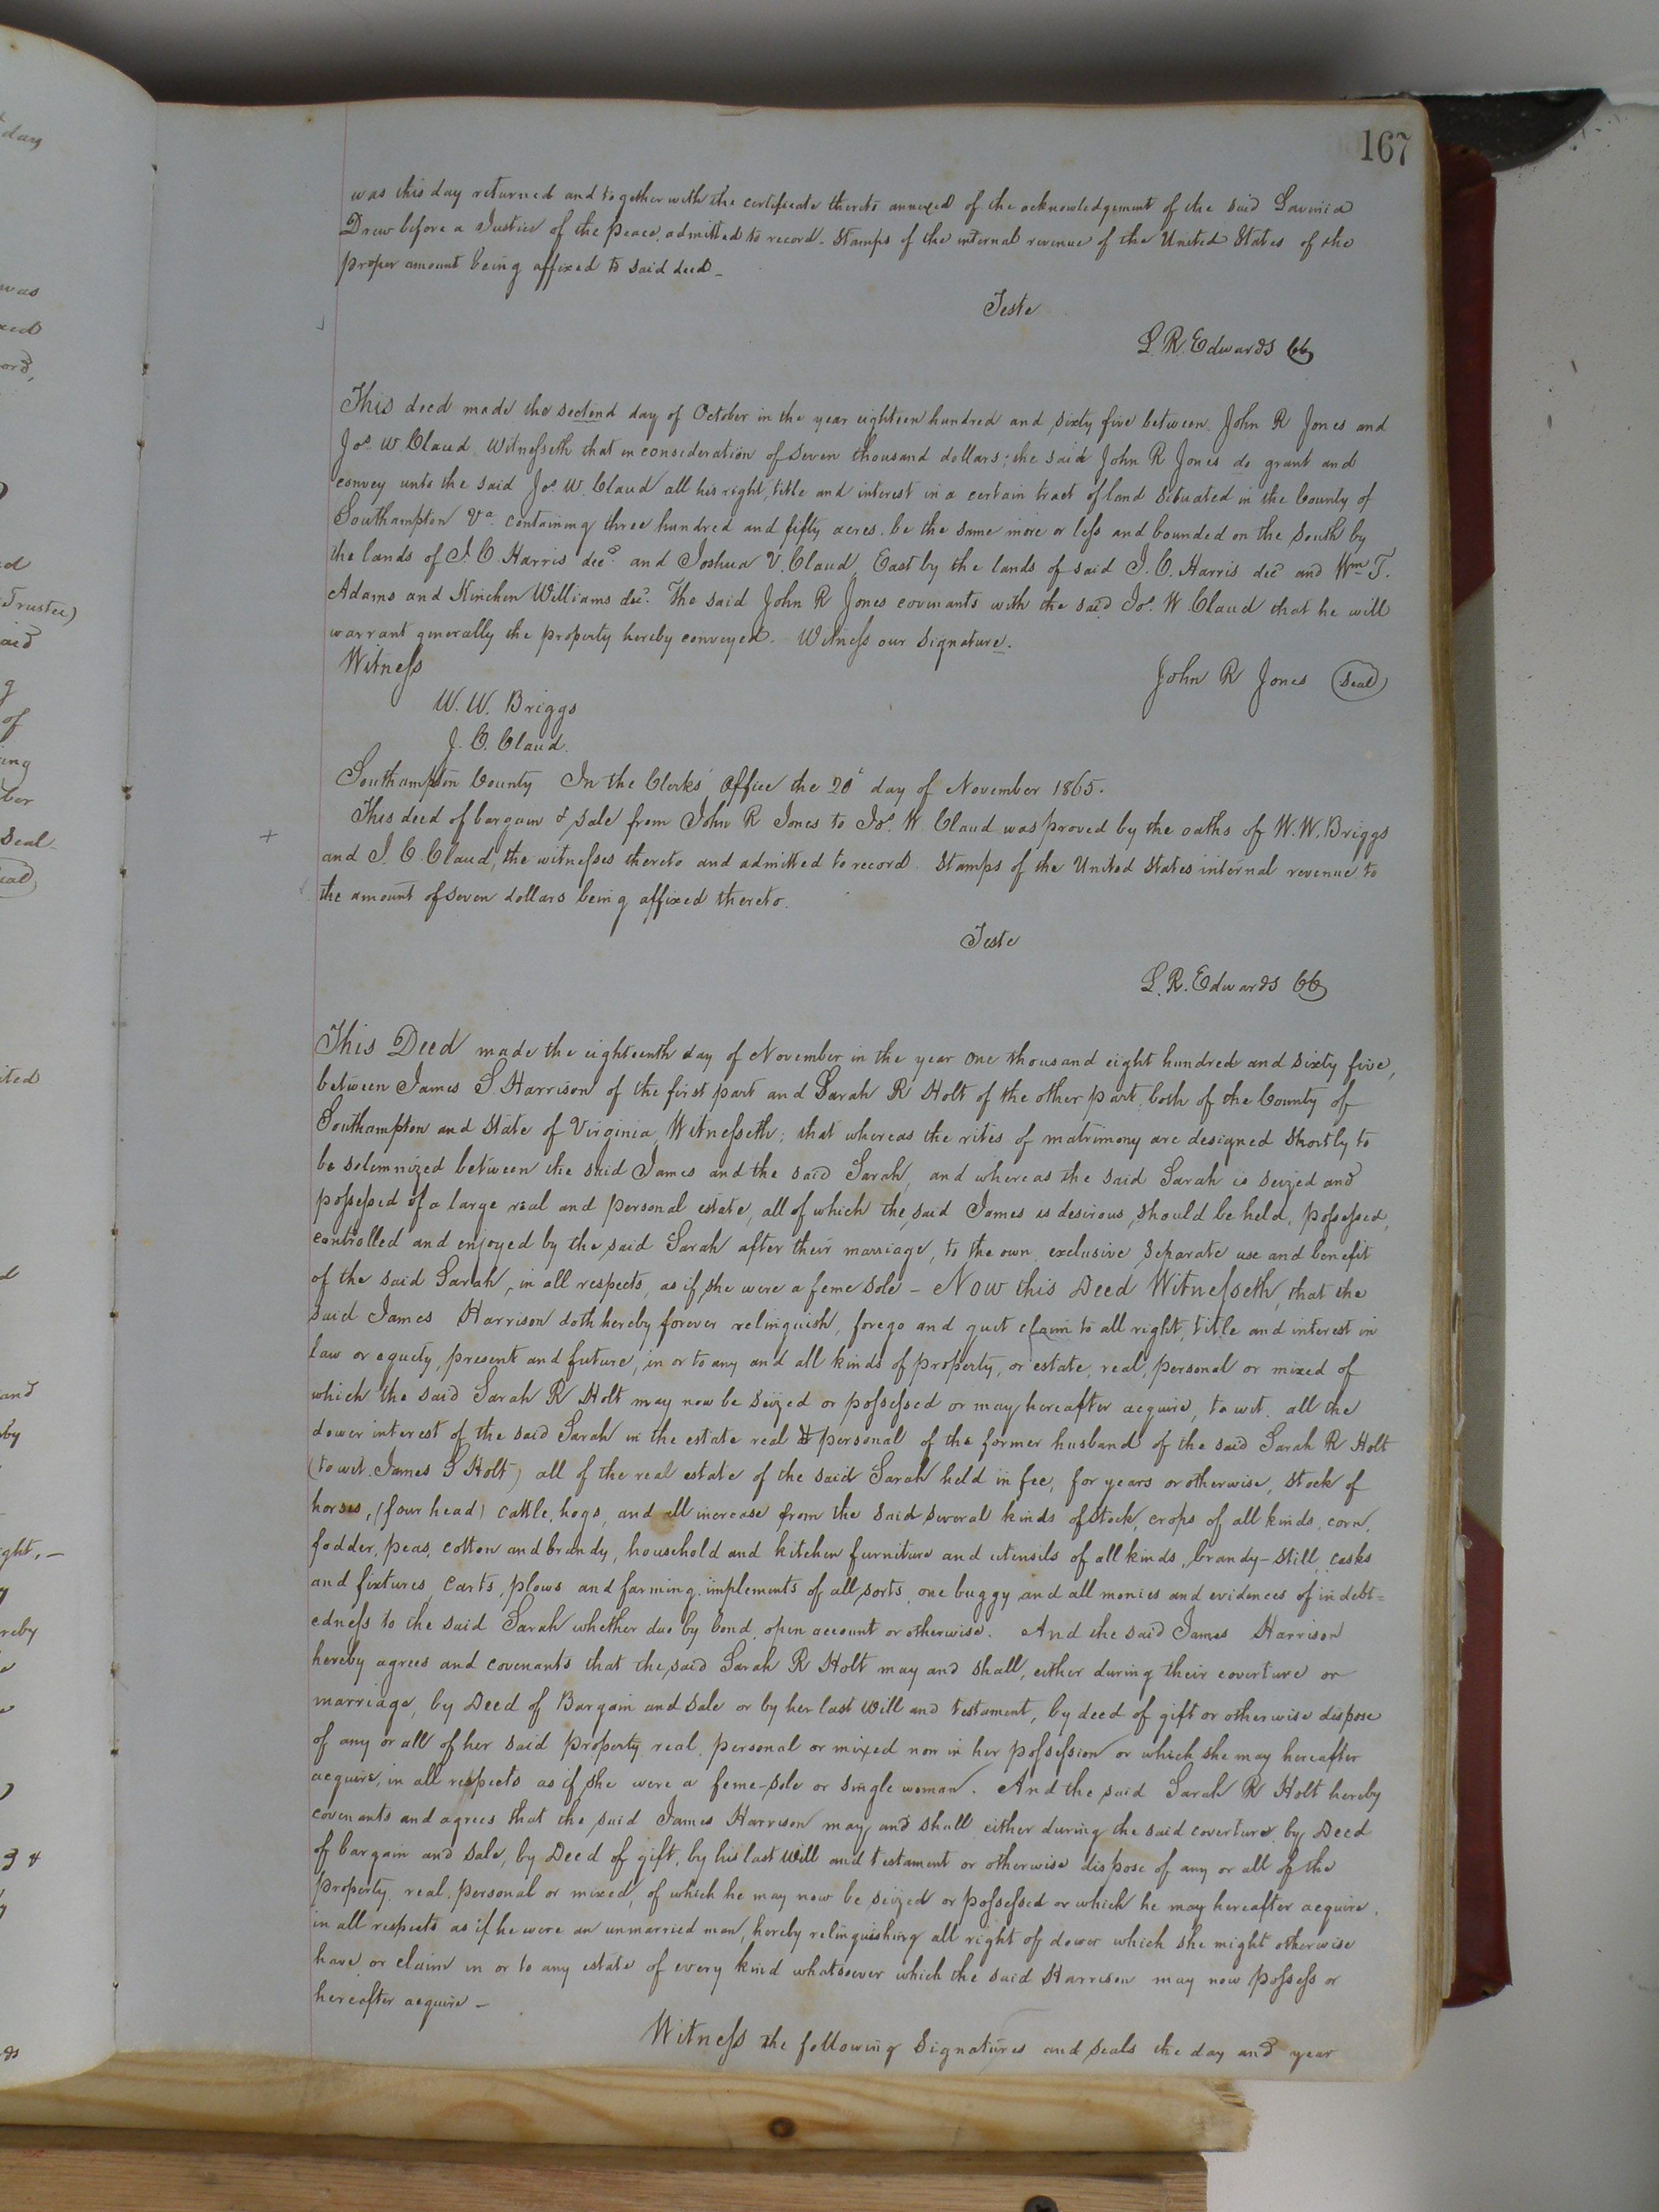 167
was this day returned and together with the certificate thereto annexed of the acknowledgement of the said Lavinia
Drew before a Justice of the peace, admitted to record - Stamps of the internal revenue of the United States of the
proper amount being affixed to said deed -
Teste
L. R. Edwards CC
This deed made the second day of October in the year eighteen hundred and sixty five between John R Jones and
Jos. W. Claud Witnesseth that in consideration of seven thousand dollars; the said John R Jones do grant and
convey unto the said Jos. W. Claud all his right, title and interest in a certain tract of land situated in the County of
Southampton Va. containing three hundred and fifty acres, be the same more or less and bounded on the South by
the lands of J. C. Harris decd. and Joshua V. Claud, East by the lands of said J. C. Harris decd and Wm T.
Adams and Kinchen Williams decd. The said John R Jones covenants with the said Jos. W. Claud that he will
warrant generally the property hereby conveyed. Witness our Signature.
Witness
John R Jones (Seal)
W. W. Briggs
J. C. Claud.
Southampton County In the Clerks' Office the 20th day of November 1865.
This deed of bargain & sale from John R Jones to Jos. W. Claud was proved by the oaths of W. W. Briggs
and J. C. Claud, the witnesses thereto and admitted to record. Stamps of the United States internal revenue to
the amount of seven dollars being affixed thereto.
Teste
L. R. Edwards CC
This Deed made the eighteenth day of November in the year one thousand eight hundred and sixty five,
between James S Harrison of the first part and Sarah R Holt of the other part, both of the County of
Southampton and State of Virginia, Witnesseth; that whereas the rites of matrimony are designed shortly to
be solemnized between the said James and the said Sarah, and whereas the said Sarah is seized and
possessed of a large real and personal estate, all of which the said James is desirous, should be held, possessed,
controlled and enjoyed by the said Sarah after their marriage, to the own exclusive separate use and benefit
of the said Sarah, in all respects, as if she were a feme sole - Now this Deed Witnesseth, that the
said James Harrison doth hereby forever relinquish, forego and quit claim to all right, title and interest in
law or equity, present and future, in or to any and all kinds of property, or estate, real, personal or mixed of
which the said Sarah R Holt may now be seized or possessed or may hereafter acquire, to wit. all the
dower interest of the said Sarah in the estate real & personal of the former husband of the said Sarah R Holt
(to wit. James S Holt) all of the real estate of the said Sarah held in fee, for years or otherwise, stock of
horses, (four head) cattle, hogs, and all increase from the said several kinds of stock, crops of all kinds, corn,
fodder, peas, cotton and brandy, household and kitchen furniture and utensils of all kinds, brandy-still, casks
and fixtures, carts, plows and farming implements of all sorts, one buggy and all monies and evidences of indebt=
edness to the said Sarah whether due by bond, open account or otherwise. And the said James Harrison
hereby agrees and covenants that the said Sarah R Holt may and shall, either during their coverture or
marriage, by Deed of Bargain and sale or by her last will and testament, by deed of gift or otherwise dispose
of any or all of her said property real, personal or mixed now in her possession or which she may hereafter
acquire, in all respects as if she were a feme-sole or single woman. And the said Sarah R Holt hereby
covenants and agrees that the said James Harrison may and shall either during the said coverture by Deed
of bargain and sale, by Deed of gift, by his last will and testament or otherwise dispose of any or all of the
property, real, personal or mixed, of which he may now be seized or possessed or which he may hereafter acquire,
in all respects as if he were an unmarried man, hereby relinquishing all right of dower which she might otherwise
have or claim in or to any estate of every kind whatsoever which the said Harrison may now possess or
hereafter acquire -
Witness the following Signatures and seals the day and year